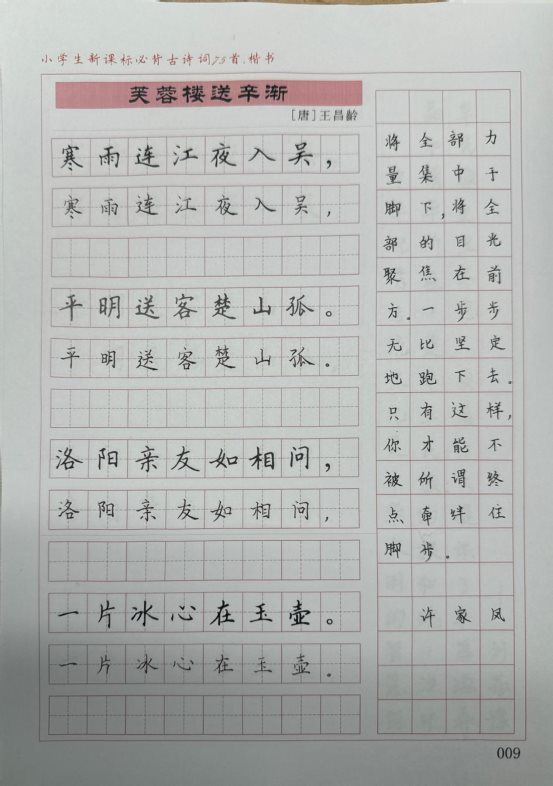 小学生新课标必背古诗词75首·楷书
芙蓉楼送辛渐
[唐]王昌龄
寒雨连江夜入吴，
寒雨连江夜入吴，
平明送客楚山孤。
平明送客楚山孤。
洛阳亲友如相问，
洛阳亲友如相问，
一片冰心在玉壶。
一片冰心在玉壶。
将全部力
量集中于
脚下，将全
部的目光
聚焦在前
方。一步步
无比坚定
地跑下去。
只有这样，
你才能不
被所谓终
点牵绊住
脚步。
许家凤
009